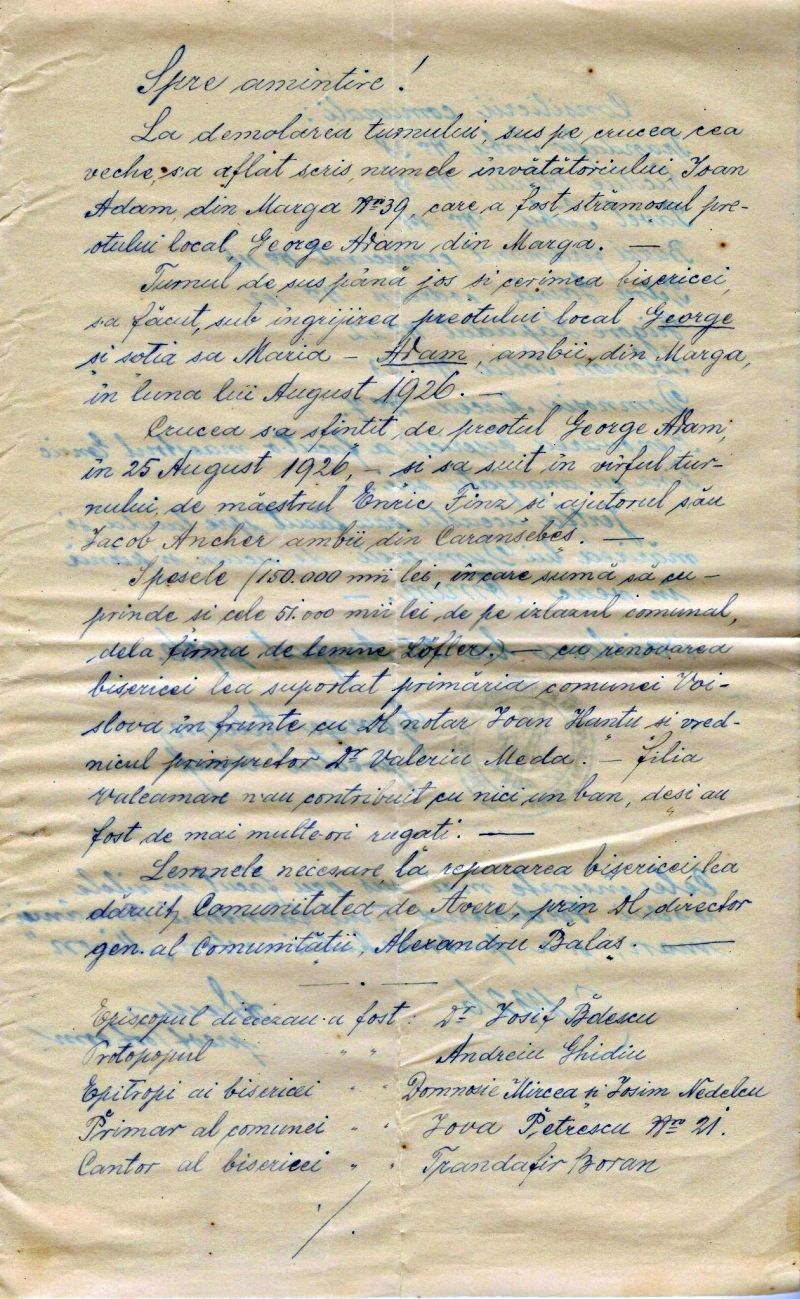 Spre amintire!
La demolarea turnului, sus pe crucea cea
veche, sa aflat scris, numele învătătoriului, Ioan
Adam, din Marga Nro 39, care a fost strămosul pre-
otului local, George Adam, din Marga. —
Turnul de sus până jos si cerimea bisericei,
sa făcut, sub îngrijirea preotului local George
si sotia sa Maria – Adam, ambii, din Marga,
in luna lui August 1926. —
Crucea sa sfintit, de preotul George Adam,
în 25 August 1926, – si sa suit în vîrful tur-
nului, de măestrul Enric Finz si ajutorul său
Jacob Ancher ambii din Caransebes. —
Spesele (150.000 mii lei, în care sumă să cu-
prinde si cele 51.000 mii lei, de pe izlazul comunal,
dela firma de lemne Löfler,) — cu renovarea
bisericei lea suportat primăria comunei Voi-
slova în frunte cu Dl notar Ioan Hantu si vred-
nicul primpretor Dr Valeriu Meda. – filia
Valeamare n-au contribuit cu nici un ban, desi au
fost de mai multe-ori rugati. —
Lemnele necesare, la repararea bisericei, lea
dăruit, Comunitatea de Avere, prin Dl, director
gen. al Comunitătii, Alexandru Balaș. —
Episcopul diecezau a fost: Dr Iosif Bădescu
Protopopul " " Andreiu Ghidiu
Epitropi ai bisericei " " Domnosie Mircea si Iosim Nedelcu
Primar al comunei " " Iova Petrescu Nro 21.
Cantor al bisericei " " Trandafir Boran
./.